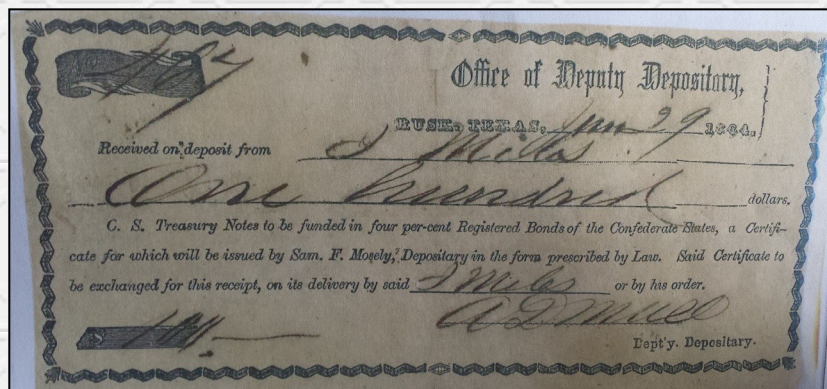 No 467
Office of Deputy Depositary,
RUSK, TEXAS, 29 1864.
Received on deposit from J Miles
One hundred dollars.
C. S. Treasury Notes to be funded in four per-cent Registered Bonds of the Confederate States, a Certifi-
cate for which will be issued by Sam. F. Mosely, Depositary in the form prescribed by Law. Said Certificate to
be exchanged for this receipt, on its delivery by said J Miles or by his order.
$ 100.
Dept'y. Depositary.